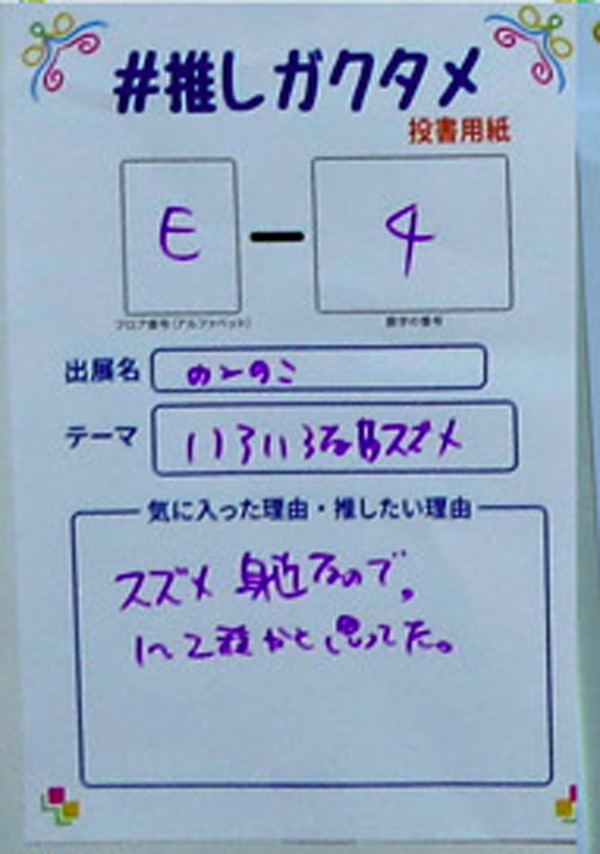 #推しガクタメ
投書用紙
E - 4
フロア番号(アルファベット)
数字の番号
出展名
のーのこ
テーマ
いろいろなスズメ
気に入った理由・推したい理由
スズメ 身近なので、
1〜2種かと思ってた。